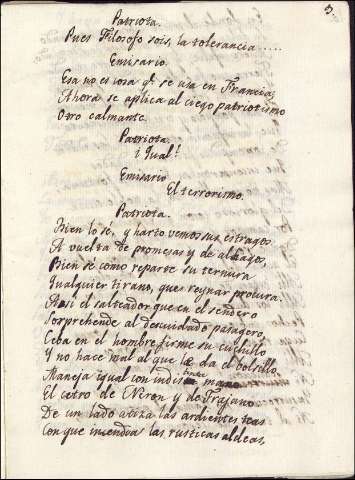 3.
Patriota.
Pues Filosofo sois, la tolerancia....
Emisario.
Esa no es cosa qe. se usa en Francia;
Ahora se aplica al ciego patriotismo
Otro calmante.
Patriota.
¡Igual!
Emisario
El terrorismo.
Patriota.
Bien lo sé, y harto vemos sus estragos
A vuelta de promesas y de alagos,
Bien sé como reparte su ternura
Qualquier tirano, que reynar procura.
Asi el salteador que en el sendero
Sorprehende al descuidado pasagero,
Ceba en el hombre firme su cuchillo
Y no hace mal al que le da el bolsillo.
Maneja igual con mano
El cetro de Neron y de Trajano
De un lado atiza las ardientes teas
Con que incendia las rusticas aldeas,